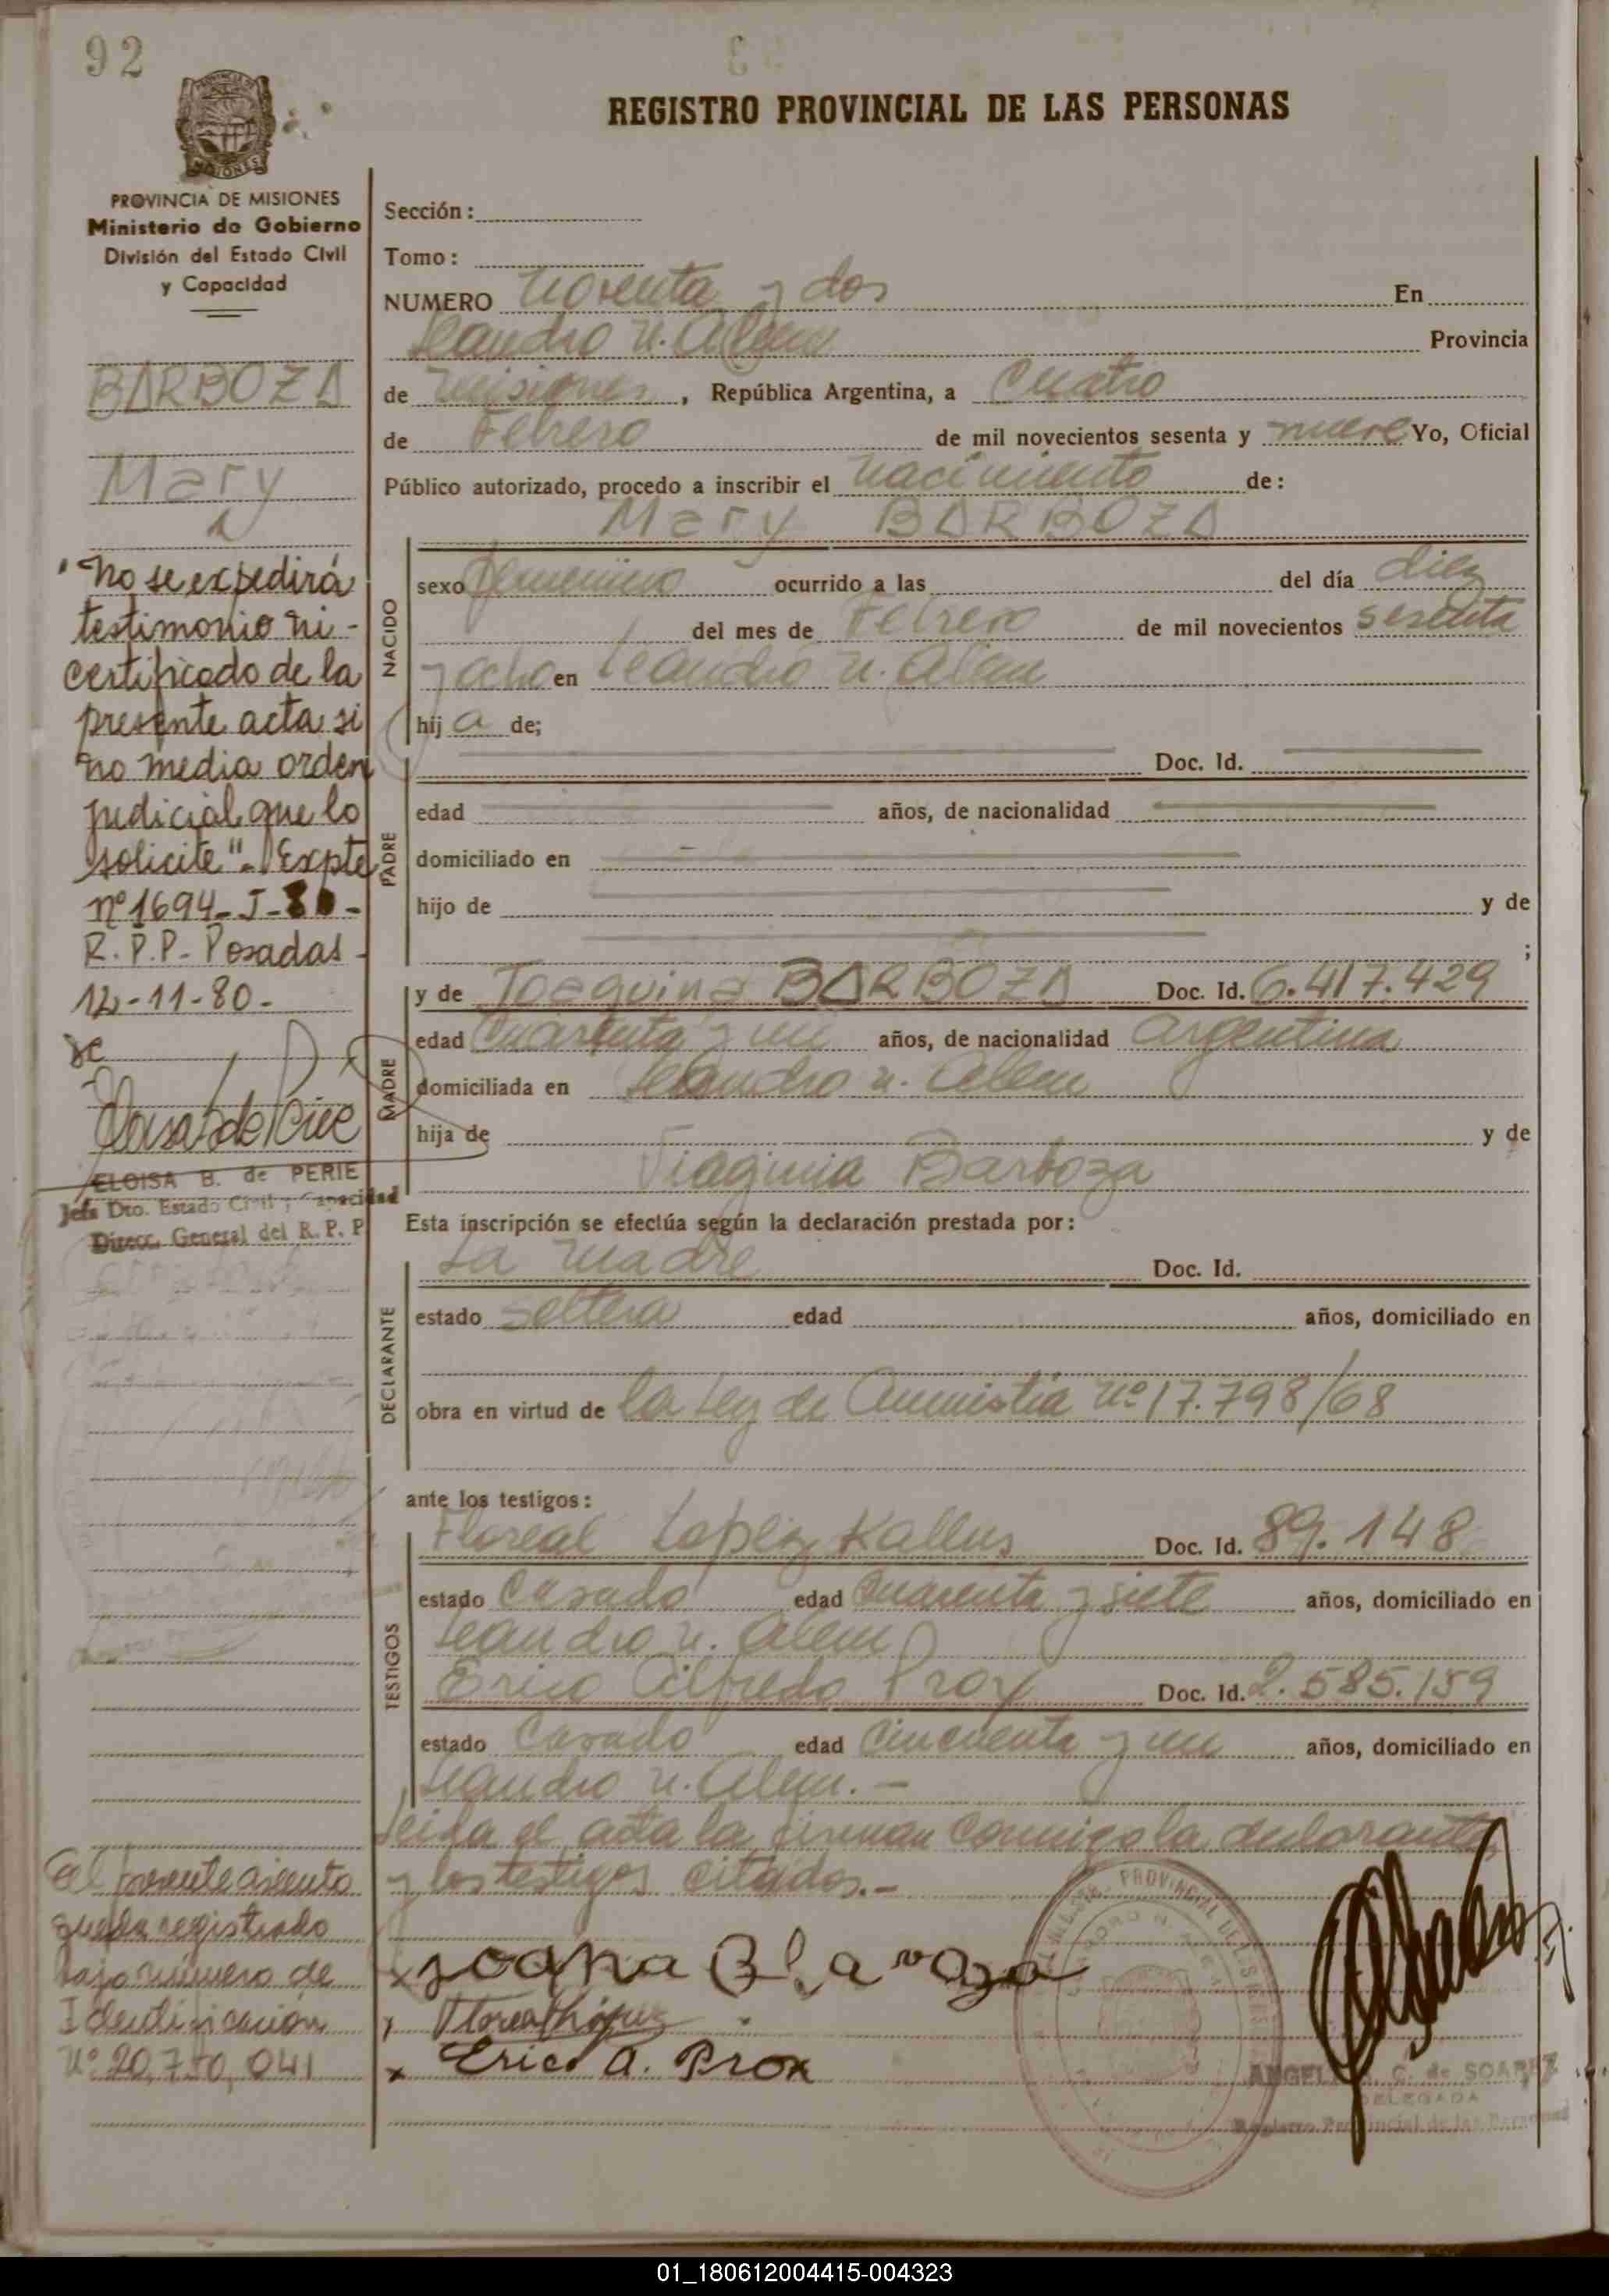 92
REGISTRO PROVINCIAL DE LAS PERSONAS
PROVINCIA DE MISIONES
Ministerio de Gobierno
División del Estado Civil
y Capacidad
BARBOZA
Mary
"No se expedirá
testimonio ni -
certificado de la
presente acta si
no media orden
judicial que lo
solicite"- Expte
nº 1694-J-80-
R.P.P- Posadas-
12-11-80-
ELOISA B. de PERIE
Jefa Dto. Estado Civil y Capacidad
Direcc. General del R. P. P.
El presente asiento
queda registrado
bajo número de
Identificación
Nº 20,750,041
Sección:
Tomo:
NUMERO Noventa y dos En
Leandro N. Alem Provincia
de Misiones, República Argentina, a Cuatro
de Febrero de mil novecientos sesenta y nueve Yo, Oficial
Público autorizado, procedo a inscribir el nacimiento de:
Mary BARBOZA
NACIDO
sexo femenino ocurrido a las del día diez
del mes de Febrero de mil novecientos sesenta
y ocho en Leandro N. Alem
hij a de;
PADRE
Doc. Id.
edad años, de nacionalidad
domiciliado en
hijo de y de
;
MADRE
y de Joaquina BARBOZA Doc. Id. 6.417.429
edad Cuarenta y un años, de nacionalidad argentina
domiciliada en Leandro N. Alem
hija de y de
Viaginia Barboza
Esta inscripción se efectúa según la declaración prestada por:
DECLARANTE
La madre Doc. Id.
estado soltera edad años, domiciliado en
obra en virtud de la Ley de Amnistia nº 17.798/68
ante los testigos:
TESTIGOS
Floreal Lopez Kallus Doc. Id. 89.148
estado Casado edad Cuarenta y siete años, domiciliado en
Leandro N. Alem
Erico Alfredo Prox Doc. Id. 2.585.159
estado Casado edad Cincuenta y un años, domiciliado en
Leandro N. Alem.-
Leida el acta la firman conmigo la declarante
y los testigos citados.-
x
x Erico A. Prox
DELEGADA
Registro Provincial de las Personas
01_180612004415-004323